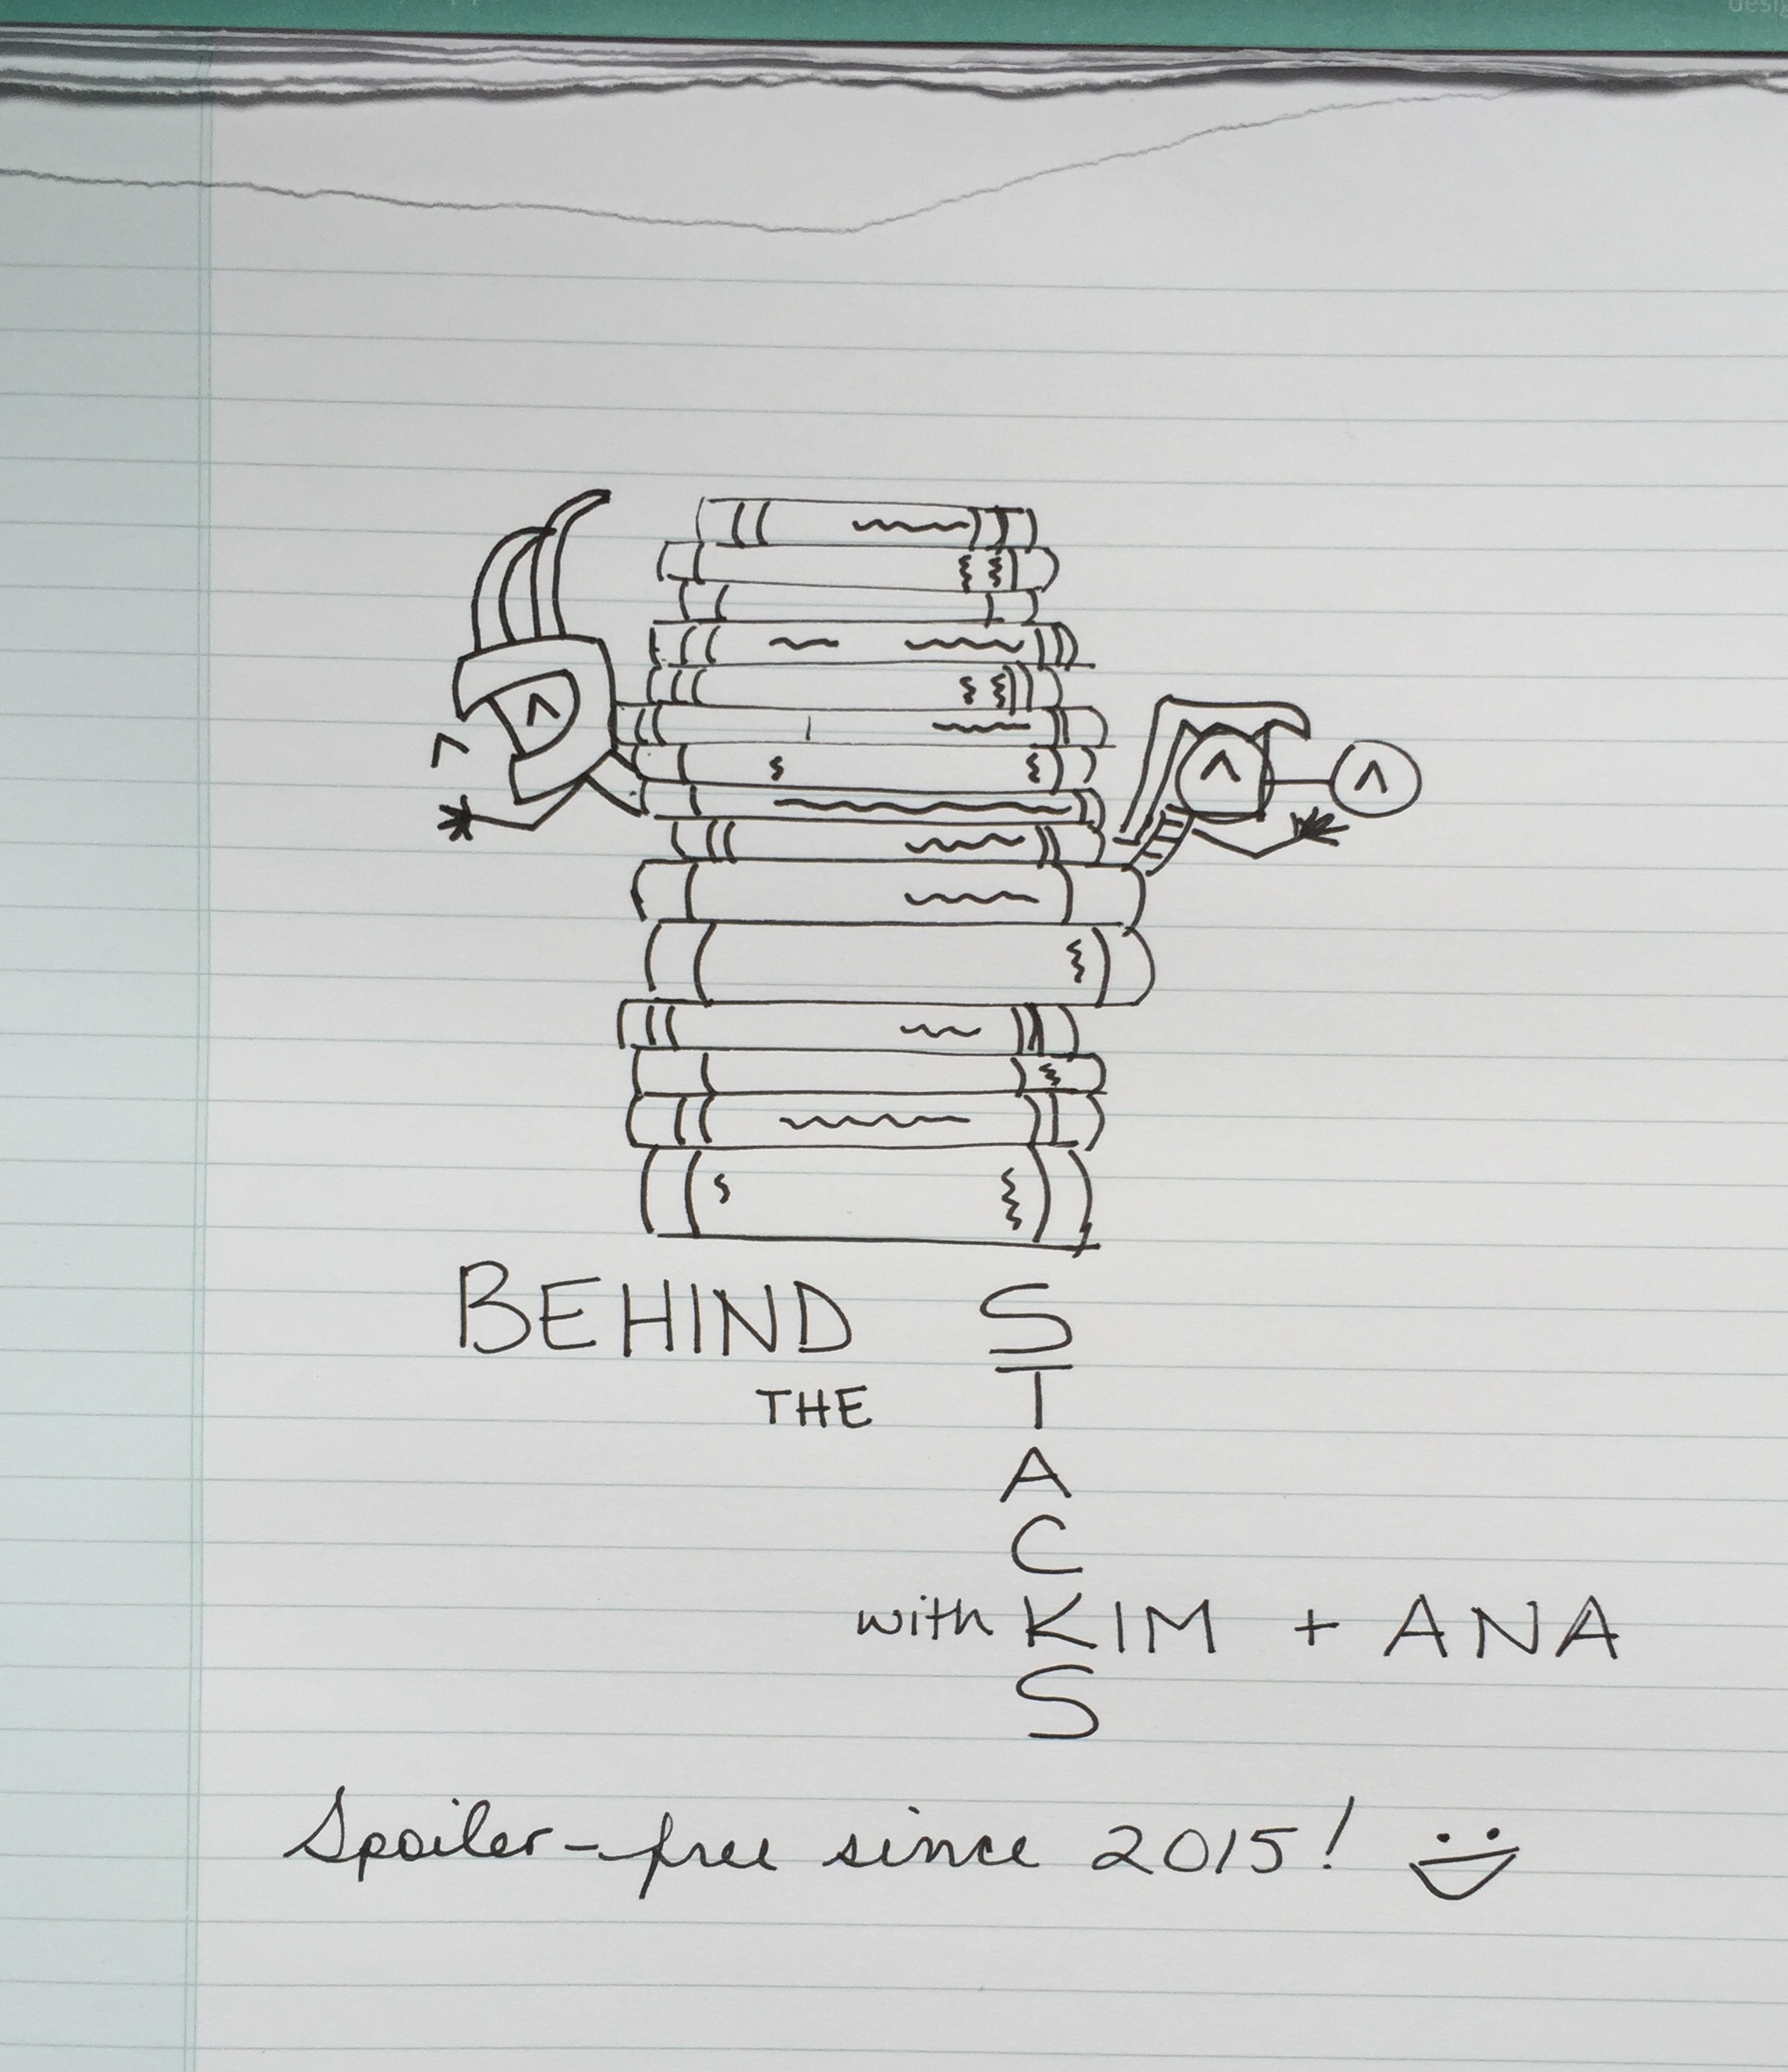 desig
BEHIND S
THE T
A
C
with KIM + ANA
S
Spoiler-free since 2015!